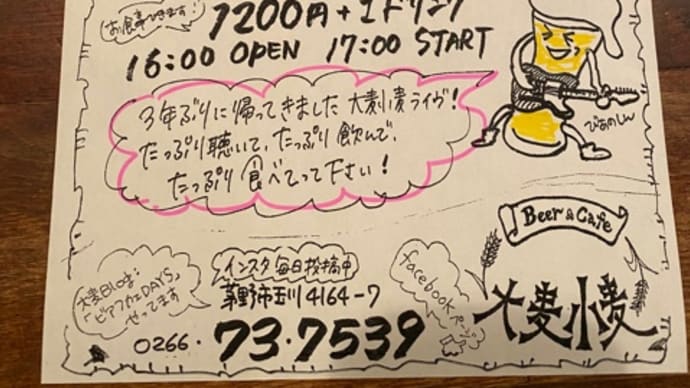 お食事できます!
1200円+1ドリンク
16:00 OPEN 17:00 START
3年ぶりに帰ってきました 大麦小麦ライヴ!
たっぷり聴いて、たっぷり飲んで、
たっぷり食べてって下さい!
ぴあのしん
Beer & Cafe
大麦小麦
インスタ毎日投稿中
茅野市玉川4164-7
0266 73-7539
大麦BLOGは
「ビアカフェDAYS」
やってます
facebookページ